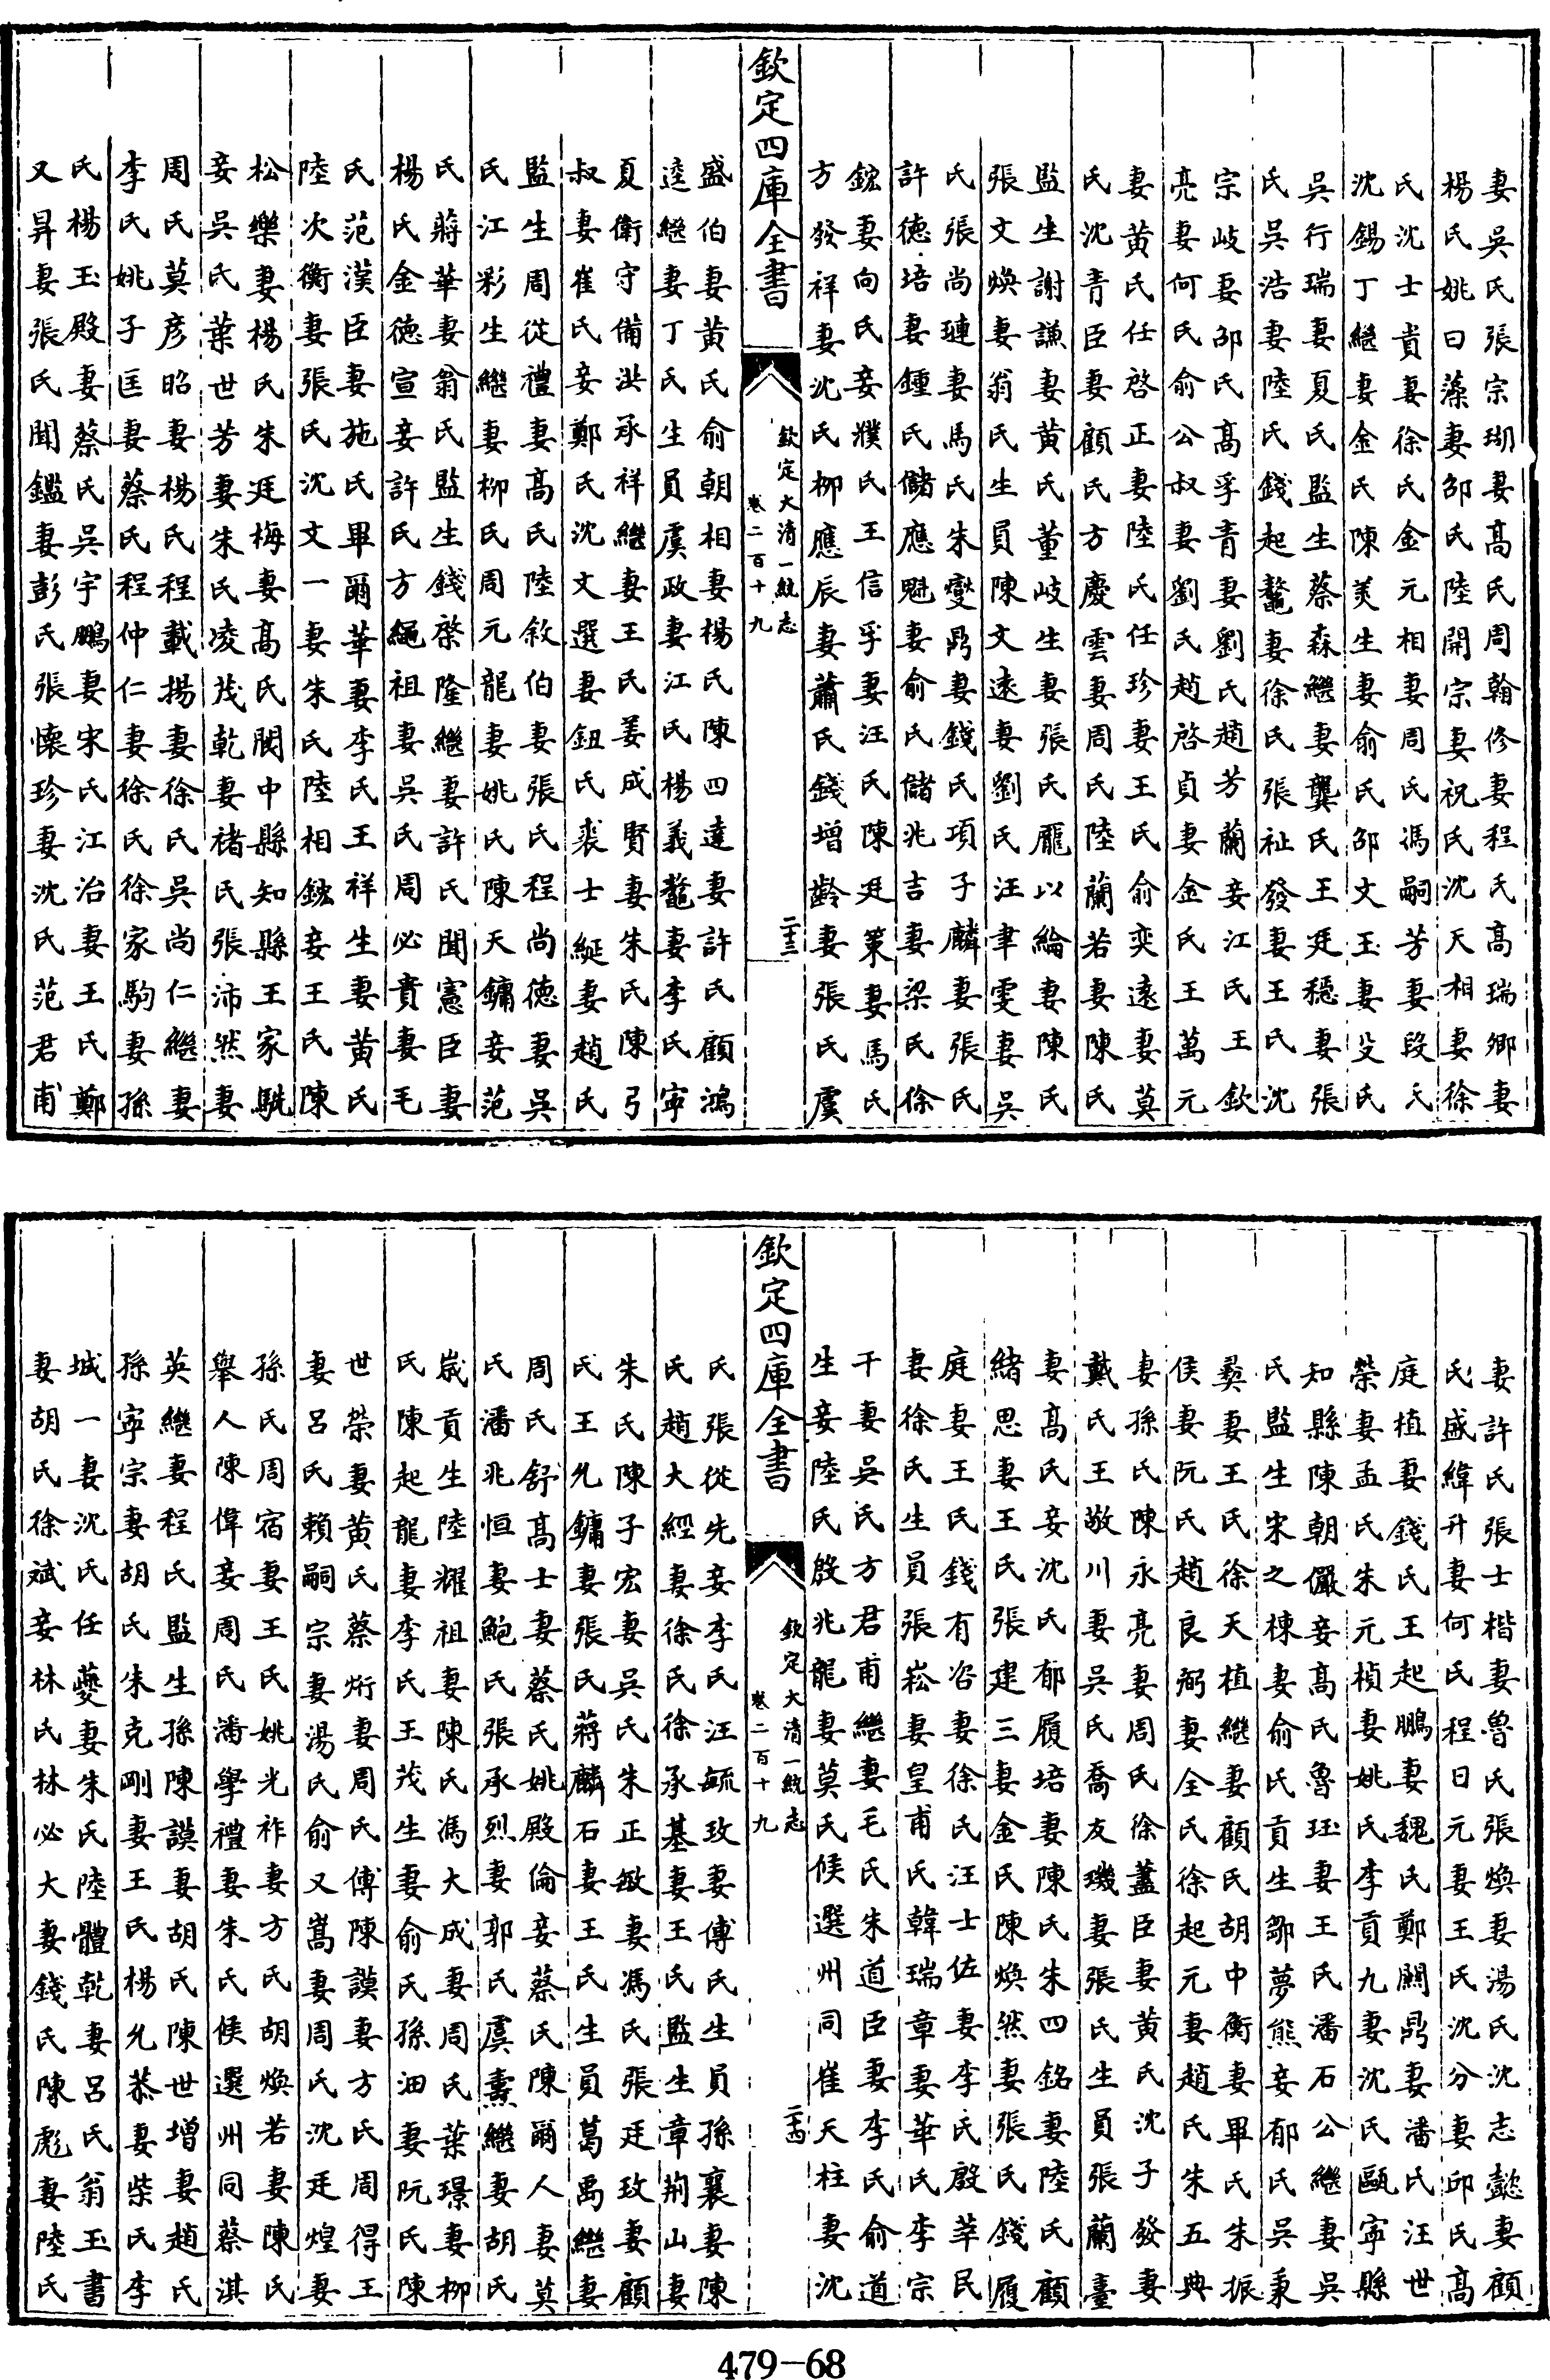 妻吳氏張宗瑚妻高氏周翰修妻程氏高瑞卿妻
楊氏姚曰藻妻邵氏陸開宗妻祝氏沈天相妻徐
氏沈士貴妻徐氏金元相妻周氏馮嗣芳妻段氏
沈錫丁繼妻金氏陳美生妻俞氏邵文玉妻殳氏
吳行瑞妻夏氏監生蔡森繼妻龔氏王廷穩妻張
氏吳浩妻陸氏錢起鼇妻徐氏張祉發妻王氏沈
宗岐妻邵氏高孚青妻劉氏趙芳蘭妾江氏王欽
亮妻何氏俞公叔妻劉氏趙啓貞妻金氏王萬元
妻黃氏任啓正妻陸氏任珍妻王氏俞奕遠妻莫
氏沈青臣妻顧氏方慶雲妻周氏陸蘭若妻陳氏
監生謝謙妻黃氏董岐生妻張氏龎以綸妻陳氏
張文煥妻翁氏生員陳文遠妻劉氏汪聿雯妻吳
氏張尚璉妻馬氏朱燮鼎妻錢氏項子麟妻張氏
許德培妻鍾氏儲應魁妻俞氏儲兆吉妻梁氏徐
鋐妻向氏妾濮氏王信孚妻汪氏陳廷策妻馬氏
方發祥妻沈氏柳應辰妻蕭氏錢增齡妻張氏虞
欽定四庫全書
欽定大清一統志
卷二百十九
二十三
盛伯妻黃氏俞朝相妻楊氏陳四達妻許氏顧鴻
逵繼妻丁氏生員虞政妻江氏楊義鼇妻李氏寗
夏衛守備洪承祥繼妻王氏姜成賢妻朱氏陳弓
叔妻崔氏妾鄭氏沈文選妻鈕氏裘士綎妻趙氏
監生周從禮妻高氏陸敘伯妻張氏程尚德妻吳
氏江彩生繼妻柳氏周元龍妻姚氏陳天鏞妾范
氏蔣華妻翁氏監生錢棨隆繼妻許氏聞憲臣妻
楊氏金德宣妾許氏方繩祖妻吳氏周必賁妻毛
氏范漢臣妻施氏畢爾華妻李氏王祥生妻黃氏
陸次衡妻張氏沈文一妻朱氏陸相鋐妾王氏陳
松樂妻楊氏朱廷梅妻高氏閿中縣知縣王家駪
妾吳氏葉世芳妻朱氏凌茂乾妻褚氏張沛然妻
周氏莫彥昭妻楊氏程載揚妻徐氏吳尚仁繼妻
李氏姚子匡妻蔡氏程仲仁妻徐氏徐家駒妻孫
氏楊玉殿妻蔡氏吳宇鵬妻宋氏江治妻王氏鄭
又昇妻張氏聞鑑妻彭氏張懷珍妻沈氏范君甫
妻許氏張士楷妻魯氏張煥妻湯氏沈志懿妻顧
氏盛緯升妻何氏程日元妻王氏沈分妻邱氏高
庭植妻錢氏王起鵬妻魏氏鄭闕鼎妻潘氏汪世
榮妻孟氏朱元楨妻姚氏李貢九妻沈氏甌寧縣
知縣陳朝儼妾高氏魯珏妻王氏潘石公繼妻吳
氏監生宋之棟妻俞氏貢生鄒夢熊妾郁氏吳秉
彝妻王氏徐天植繼妻顧氏胡中衡妻畢氏朱振
侯妻阮氏趙良弼妻全氏徐起元妻趙氏朱五典
妻孫氏陳永亮妻周氏徐藎臣妻黃氏沈子發妻
戴氏王敬川妻吳氏喬友璣妻張氏生員張蘭臺
妻高氏妾沈氏郁履培妻陳氏朱四銘妻陸氏顧
緒思妻王氏張建三妻金氏陳煥然妻張氏錢履
庭妻王氏錢有咨妻徐氏汪士佐妻李氏殷莘民
妻徐氏生員張崧妻皇甫氏韓瑞章妻華氏李宗
干妻吳氏方君甫繼妻毛氏朱道臣妻李氏俞道
生妾陸氏殷兆龍妻莫氏候選州同崔天柱妻沈
欽定四庫全書
欽定大清一統志
卷二百十九
二十四
氏張從先妾李氏汪毓玫妻傅氏生員孫襄妻陳
氏趙大經妻徐氏徐承基妻王氏監生章荊山妻
朱氏陳子宏妻吳氏朱正敏妻馮氏張廷玫妻顧
氏王允鏞妻張氏蔣麟石妻王氏生員葛禹繼妻
周氏舒高士妻蔡氏姚殿倫妾蔡氏陳爾人妻莫
氏潘兆恒妻鮑氏張承烈妻郭氏虞燾繼妻胡氏
歲貢生陸耀祖妻陳氏馮大成妻周氏葉璟妻柳
氏陳起龍妻李氏王茂生妻俞氏孫沺妻阮氏陳
世榮妻黃氏蔡㸁妻周氏傅陳謨妻方氏周得王
妻呂氏賴嗣宗妻湯氏俞又嵩妻周氏沈廷煌妻
孫氏周宿妻王氏姚光祚妻方氏胡煥若妻陳氏
舉人陳偉妾周氏潘學禮妻朱氏候選州同蔡淇
英繼妻程氏監生孫陳謨妻胡氏陳世增妻趙氏
孫寧宗妻胡氏朱克剛妻王氏楊允恭妻柴氏李
城一妻沈氏任夔妻朱氏陸體乾妻呂氏翁玉書
妻胡氏徐斌妾林氏林必大妻錢氏陳彪妻陸氏
479-68